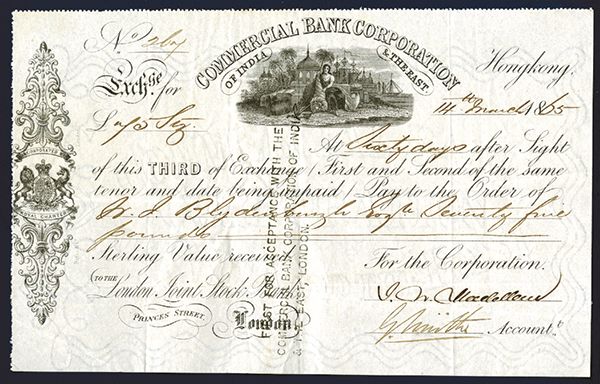 No
COMMERCIAL BANK CORPORATION
OF INDIA & THE EAST.
Hongkong.
Exchge for
14th March 1865
£75 Stg
At Sixty days after Sight
of this THIRD of Exchange (First and Second of the same
tenor and date being unpaid) Pay to the Order of
Seventy five
pounds
Sterling Value received
TO THE
London Joint Stock Bank
PRINCES STREET.
London.
For the Corporation.
Accountt.
INCORPORATED
ROYAL CHARTER
FIRST FOR ACCEPTANCE WITH THE
COMMERCIAL BANK CORPORATION OF INDIA
& THE EAST, LONDON.